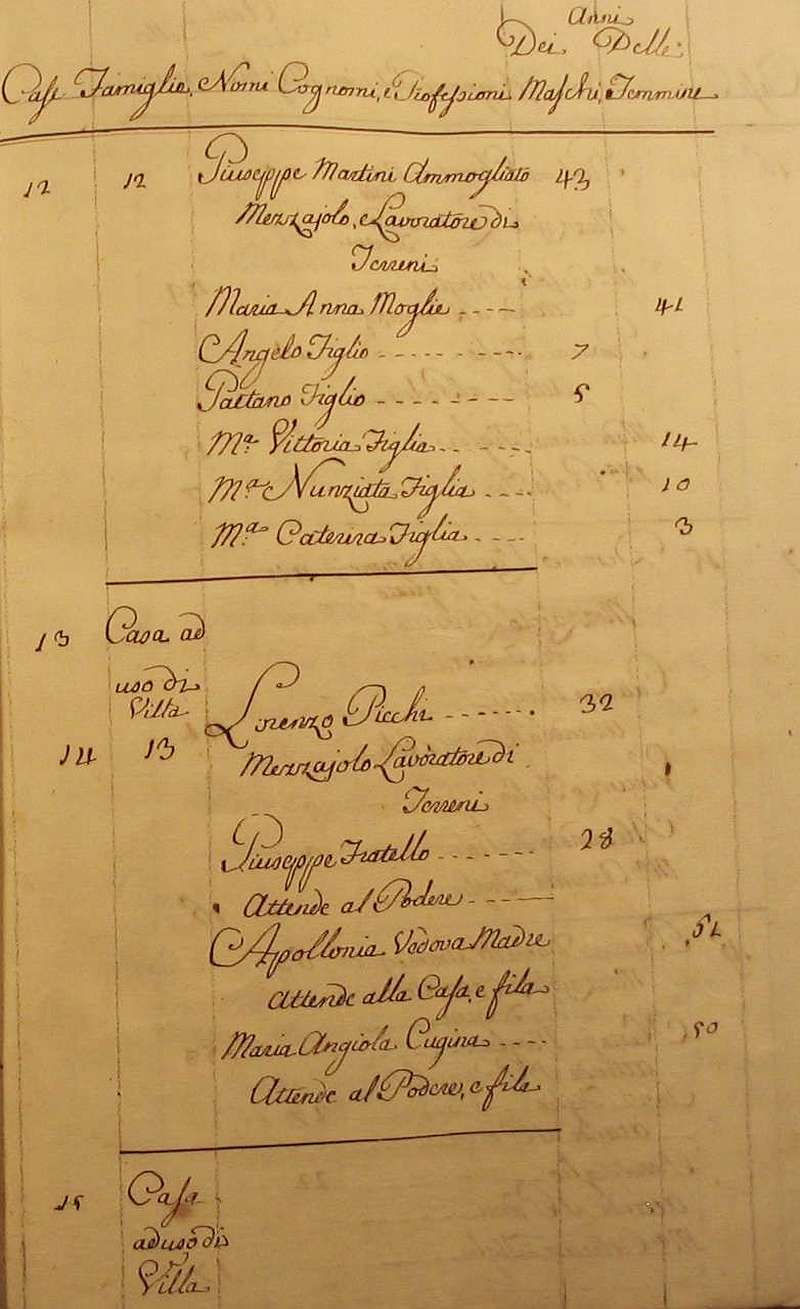 Anni
Dei Delle
Case Famiglie, Nomi Cognomi, e Professioni Maschi, Femmine
12 12 Giuseppe Martini Ammogliato 43
Mezzajolo, e Lavoratore di
Terreni
Maria Anna Moglie 41
Angelo Figlio 7
Gaetano Figlio 5
M.a Vittoria Figlia 14
M.a Nunziata Figlia 10
M.a Caterina Figlia 3
13 Casa ad
uso di
Villa
Lorenzo Picchi 32
14 13 Mezzajolo Lavoratore di
Terreni
Giuseppe Fratello 28
Attende al Podere
Apollonia Vedova Madre 51
Attende alla Casa, e fila
Maria Angiola Cugina 50
Attende al Podere, e fila
15 Casa
ad uso di
Villa